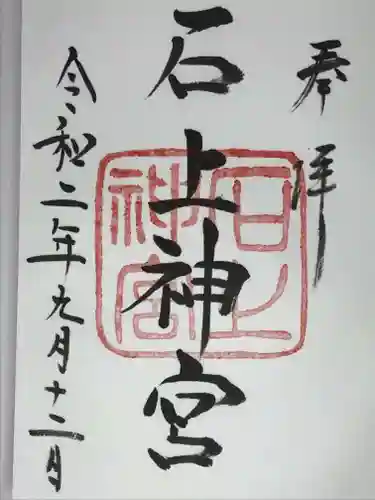 奉拝
石上神宮
石上
神宮
令和二年九月十二月